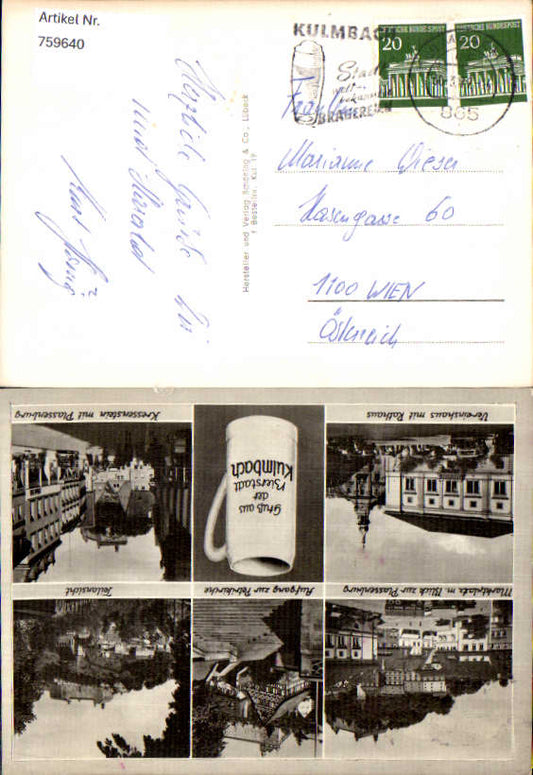 Artikel Nr.
759640
KULMBACH
Stadt
welt-
bekannter
BRAUEREIEN
DEUTSCHE BUNDESPOST
20
DEUTSCHE BUNDESPOST
20
865
Fräulein
Marianne Dieser
Hasengasse 60
1100 WIEN
Österreich
Herzliche Grüße
und Harald
Hersteller und Verlag Schöning & Co., Lübeck
Bestellnr. Kul 19
Kressenstein mit Plassenburg
Vereinshaus mit Rathaus
Gruß aus
der
Bierstadt
Kulmbach
Teilansicht
Aufgang zur Petrikirche
Marktplatz m. Blick zur Plassenburg